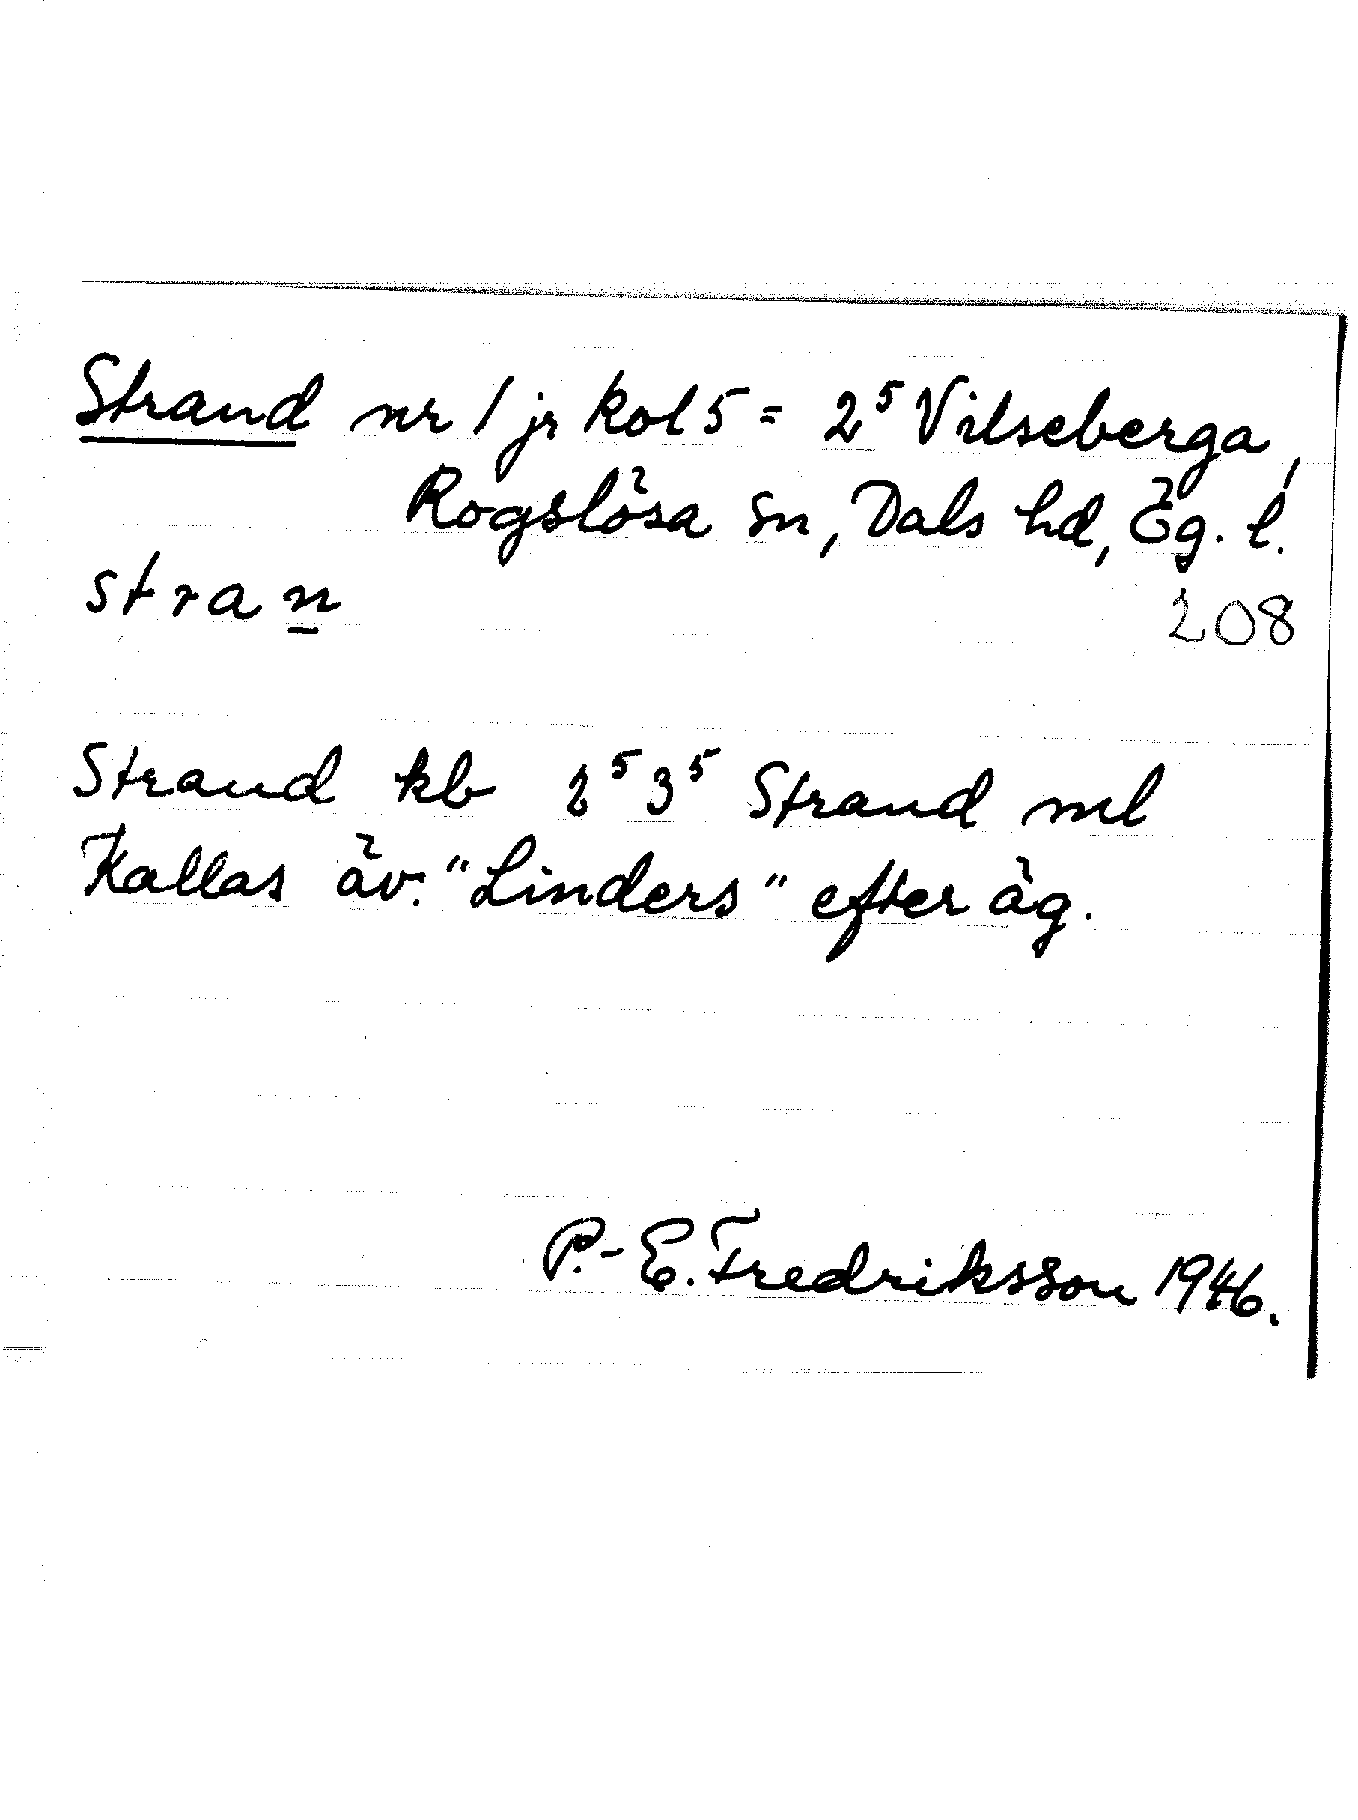 Strand nr 1 jr kol 5 = 2⁵ Vilseberga,
Rogslösa sn, Dals hd, Ög. l.
stran
208
Strand kb 2⁵ 3⁵ Strand ml
Kallas äv. "Linders" efter äg.
P.-E. Fredriksson 1946.